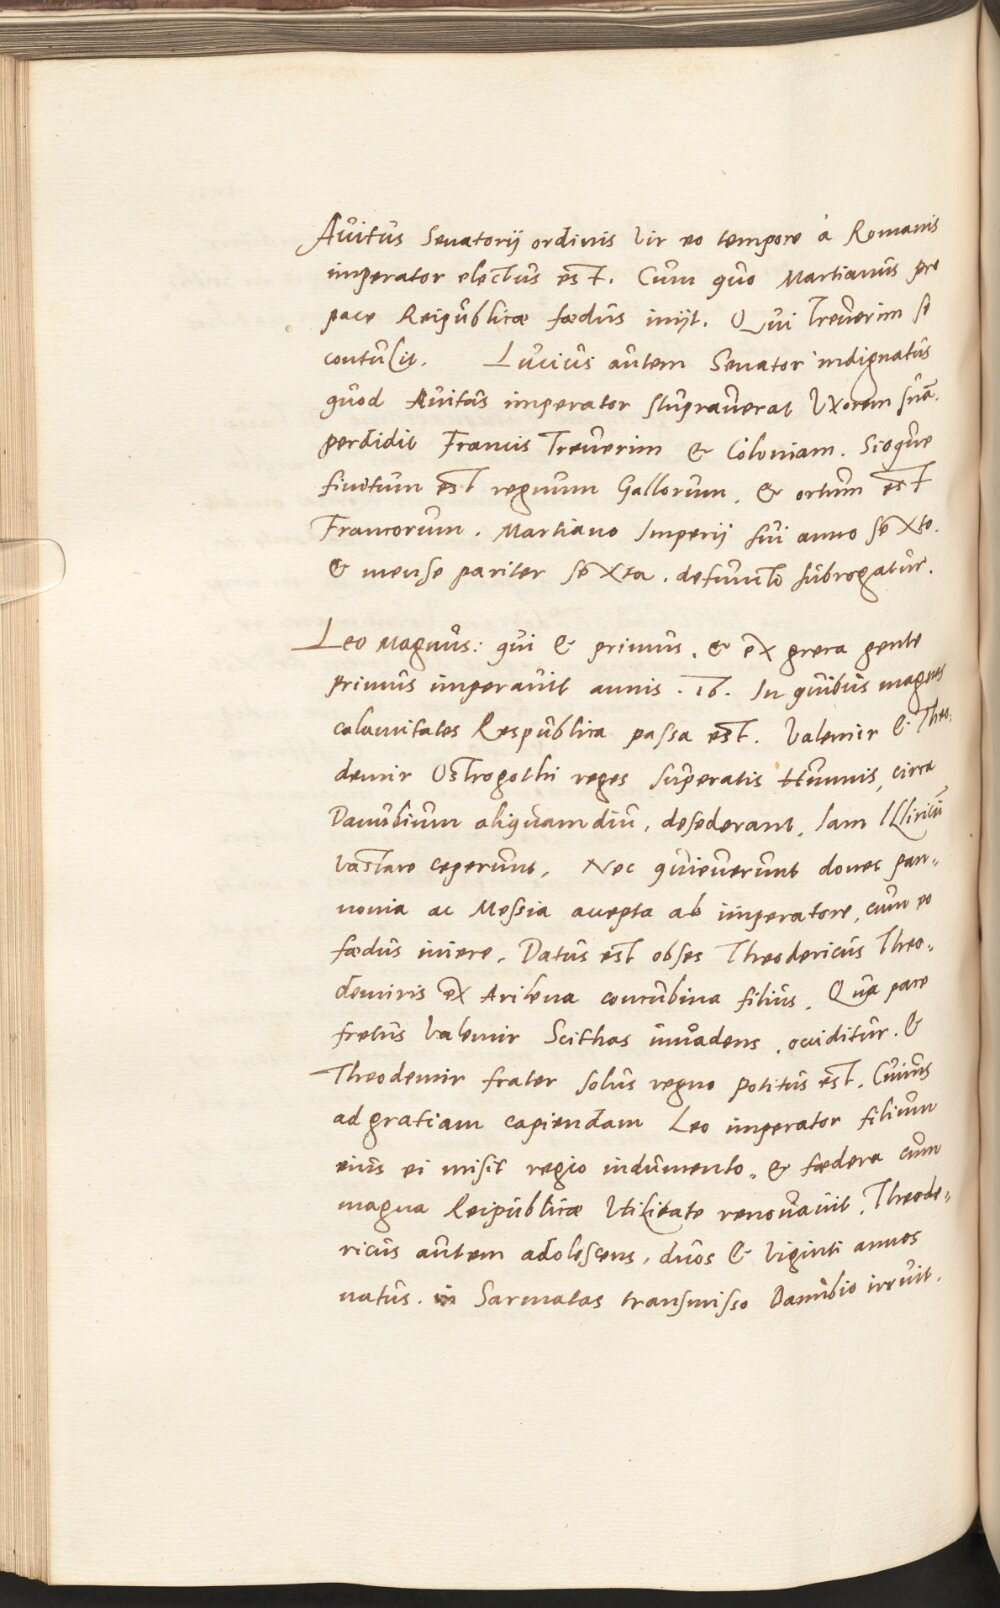 Auitus Senatorij ordinis Vir eo tempore à Romanis
imperator electus est. Cum quo Martianus pro
pace Reipublicæ fœdus inijt. Qui Treuerim se
contulit. Lucius autem Senator indignatus
quod Auitus imperator stuprauerat Vxorem suã.
perdidit Francis Treuerim & Coloniam. Sicque
finitum est regnum Gallorum, & ortum est
Francorum. Martiano Imperij sui anno sexto.
& mense pariter sexto. defuncto subrogatur.
Leo Magnus: qui & primus, & ex greca gente
primus imperauit annis .16. In quibus magnas
calamitates Respublica passa est. Valemir & Theo,
demir Ostrogothi reges superatis Hunnis, circa
Danubium aliquamdiu, desederant, Iam Illiricũ
vastare ceperunt, Nec quieuerunt donec pan,,
nonia ac Messia accepta ab imperatore, cum eo
fœdus iniere. Datus est obses Theodericus Theo,,
demiris ex Arilena concubina filius. Qua pace
fretus Valemir Scithas inuadens, occiditur. &
Theodemir frater solus regno potitus est. Cuius
ad gratiam capiendam Leo imperator filium
eius ei misit regio indumento,, & fœdera cum
magna Reipublicæ Vtilitate renouauit. Theode,,
ricus autem adolescens, duos & Viginti annos
natus. in Sarmatas transmisso Danubio irruit.